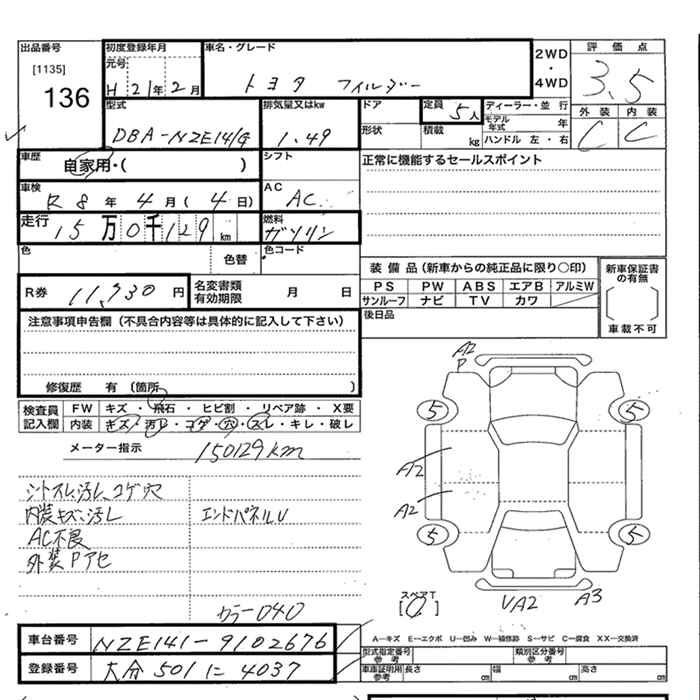 出品番号 [1135] 136
初度登録年月 元号 H 21年 2月
車名・グレード トヨタ フィルダー
2WD・4WD
評価点 3.5
型式 DBA-NZE141G
排気量又はkw 1.49
ドア 形状
定員 5人
積載 kg
ディーラー・並行
モデル年式 年
ハンドル 左・右
外装 C 内装 C
車歴 自家用・( )
シフト
正常に機能するセールスポイント
車検 R 8年 4月( 4日)
AC AC
走行 15万0千129km
燃料 ガソリン
色 色替 色コード
装備品(新車からの純正品に限り○印)
PS PW ABS エアB アルミW
サンルーフ ナビ TV カワ
新車保証書の有無 [ ] 車載不可
R券 11,930円
名変書類有効期限 月 日
後日品
注意事項申告欄(不具合内容等は具体的に記入して下さい)
修復歴 有(箇所 )
検査員記入欄 FW キズ・飛石・ヒビ割・リペア跡・X要
内装 キズ・汚レ・コゲ・穴・スレ・キレ・破レ
メーター指示 150129km
シートスレ汚レ、コゲ穴
内装キズ、汚レ
エンドパネルU
AC不良
外装Pアセ
カラー040
A2
P
5 5
A2
A2
5 5
スペアT [0]
UA2 A3
車台番号 NZE141-9102676
登録番号 大分 501 に 4037
A―キズ E―エクボ U―凹み W―補修跡 S―サビ C―腐食 XX―交換済
型式指定番号 参考 類別区分番号 参考
車庫証明用 参考 長さ cm 幅 cm 高さ cm